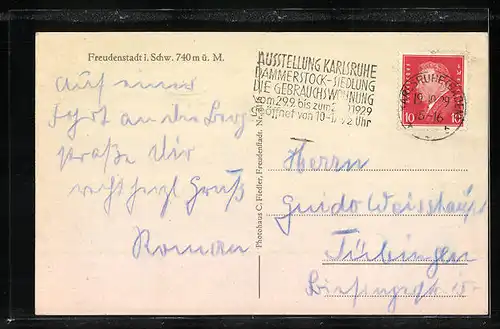 Freudenstadt i. Schw. 740 m ü. M.
Auf einer
Fahrt an die Berg
straße Dir
recht herzl. Gruß
Roman
Photohaus C. Fiedler, Freudenstadt. Nr.
AUSSTELLUNG KARLSRUHE
DAMMERSTOCK-SIEDLUNG
DIE GEBRAUCHSWOHNUNG
vom 29.9. bis zum 1929
geöffnet von 10- Uhr
KARLSRUHE
10 10
Herrn
Guido Weisshaupt
Tübingen